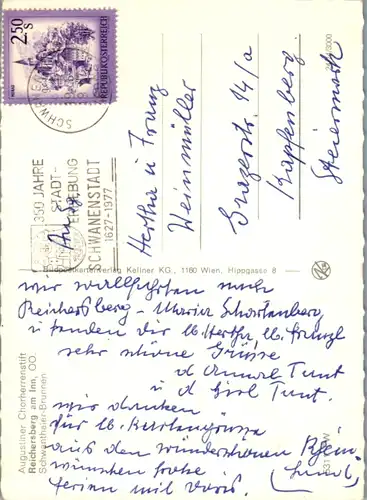 2.50
S
REPUBLIK ÖSTERREICH
350 JAHRE
STADT-
ERHEBUNG
SCHWANENSTADT
1627-1977
Hertha u Franz
Weinmüller
Grazerstr. 14/a
Kapfenberg
Steiermark
Buntpostkartenverlag Kellner KG., 1160 Wien, Hippgasse 8
Augustiner Chorherrenstift
Reichersberg am Inn, OÖ.
Schwanthaler-Brunnen
wir wallfahrten nach
Reichersberg - Maria
u senden dir lb. Hertha, lb. Franzl
sehr schöne Grüsse
wir danken
für lb. Kartengrüsse
aus den wunderschönen
wünschen frohe
Ferien mit